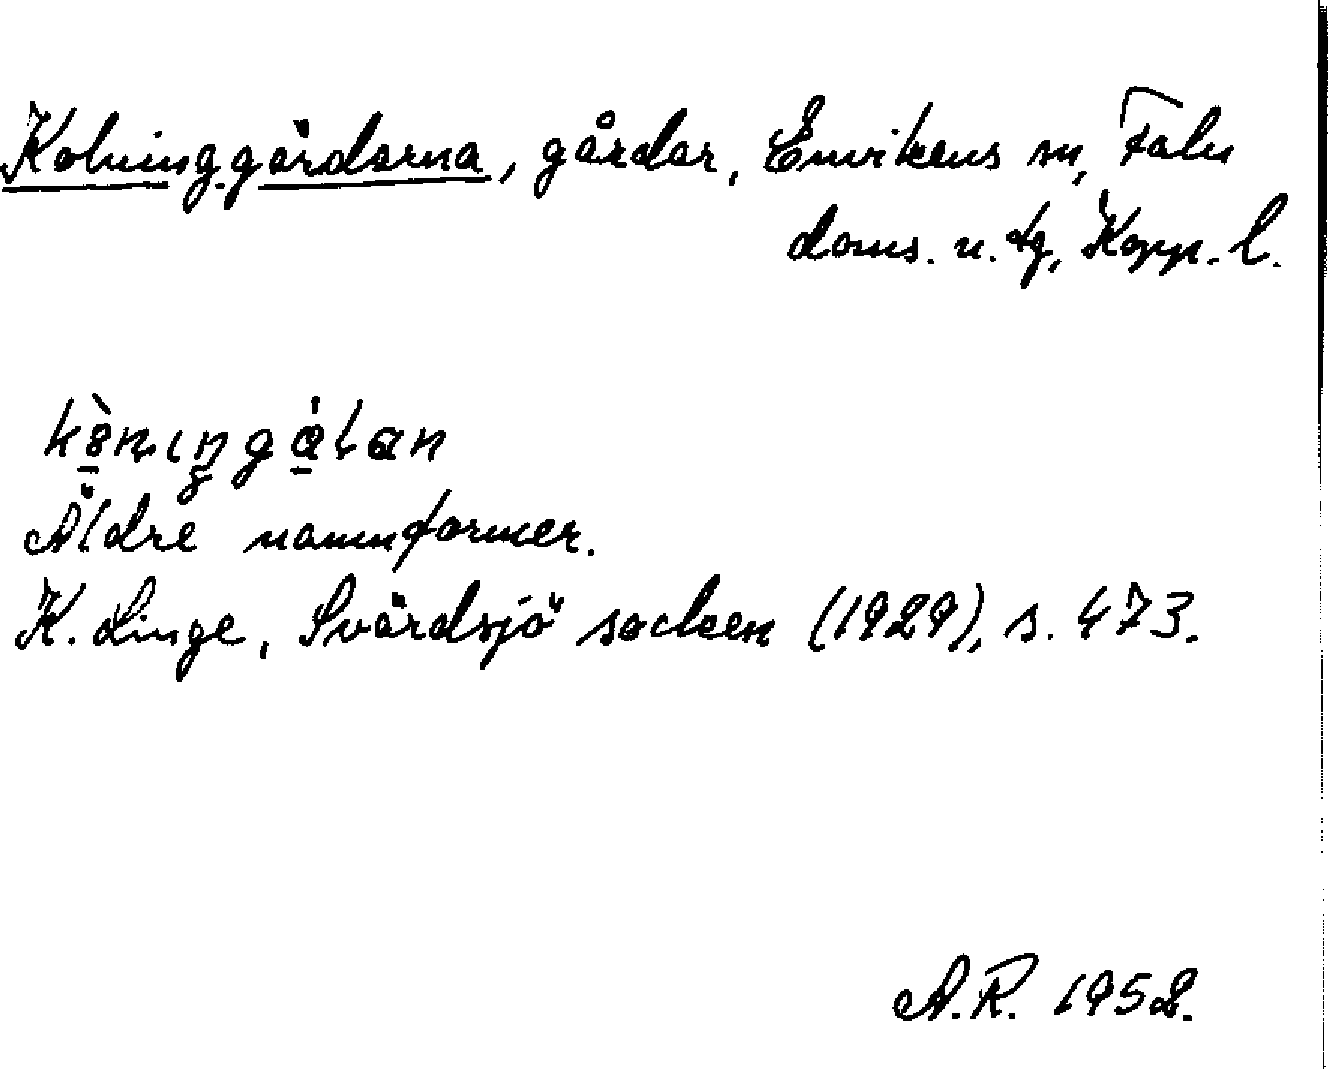 Kolninggårdarna, gårdar, Envikens sn, Falu
doms. n. tg, Kopp. l.
Äldre namnformer.
K. Linge, Svärdsjö socken (1929), s. 473.
A.R. 1952.